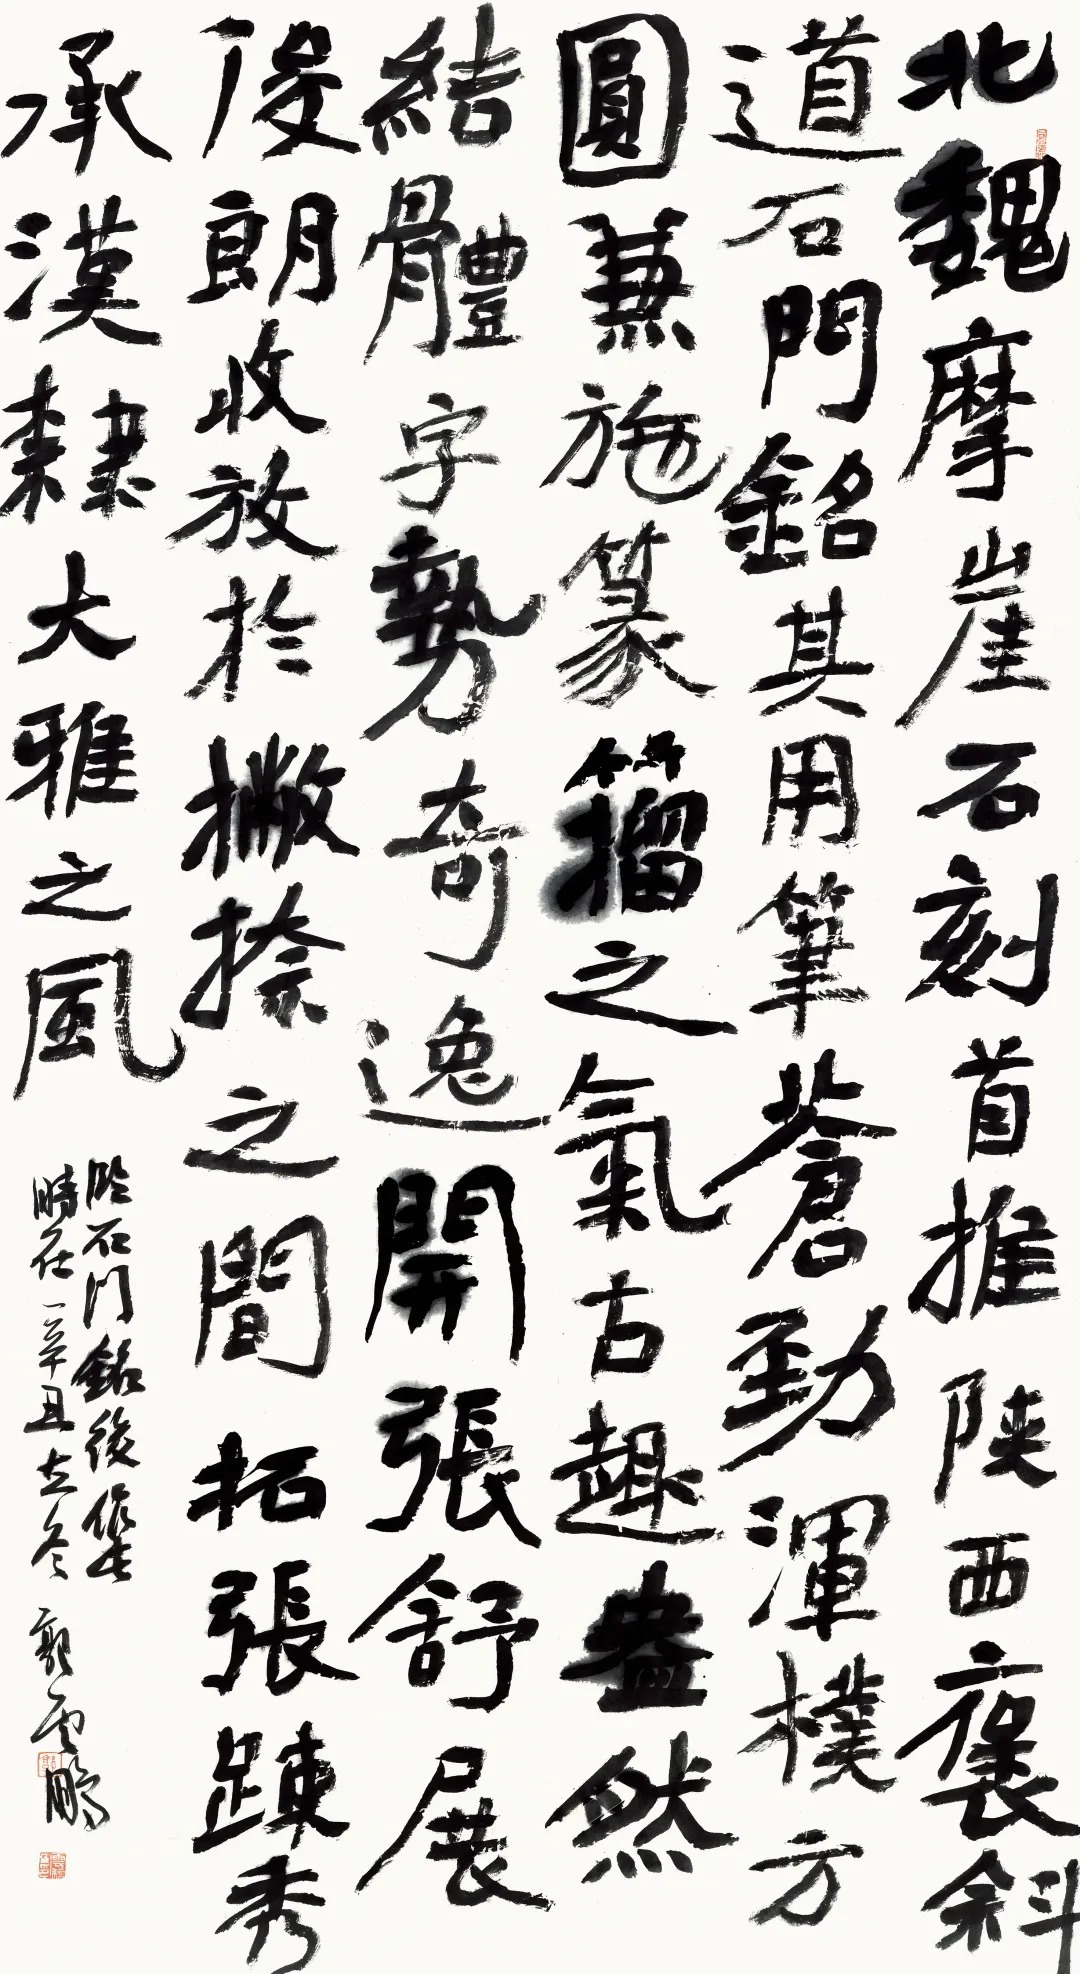 北魏摩崖石刻首推陕西褒斜
道石門銘其用筆蒼勁渾樸方
圓兼施篆籀之氣古趣盎然
結體字勢奇逸開張舒展
俊朗收放於撇捺之間拓張疎秀
承漢隸大雅之風
臨石門銘後筆
時在辛丑立冬 郭雲鵬